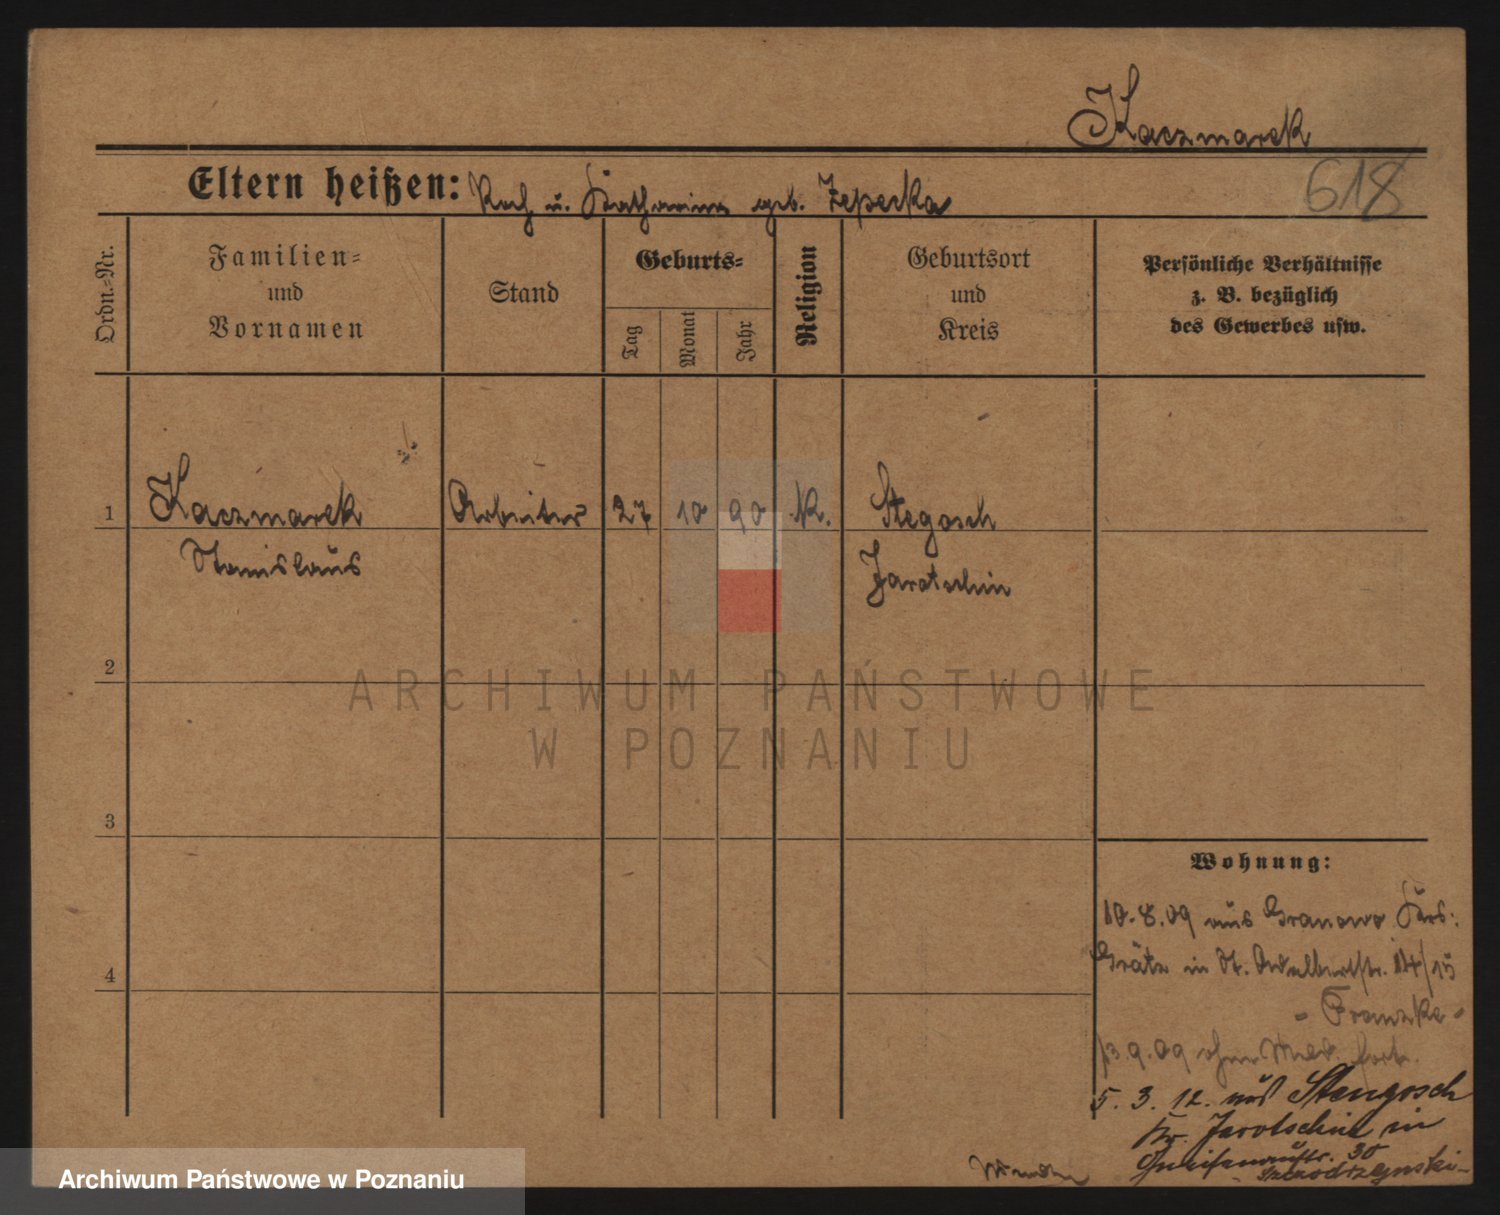 Kaczmarek
618
Eltern heißen: Roch u. Katharina geb. Rzepecka
Ordn.=Nr.
Familien=
und
Vornamen
Stand
Geburts=
Tag
Monat
Jahr
Religion
Geburtsort
und
Kreis
Persönliche Verhältnisse
z. B. bezüglich
des Gewerbes usw.
1 Kaczmarek Arbeiter 27 10 90 K. Stegosch
Stanislaus Jarotschin
2
3
4
Wohnung:
10.8.09 aus Granowo Krs.
Grätz in St. Adalbertstr. 14/15
- Franzke -
13.9.09 ohne Meld. fort.
5. 3. 12. aus Stengosch
Kr. Jarotschin in
Gneisenaustr. 30
ARCHIWUM PAŃSTWOWE
W POZNANIU
Archiwum Państwowe w Poznaniu